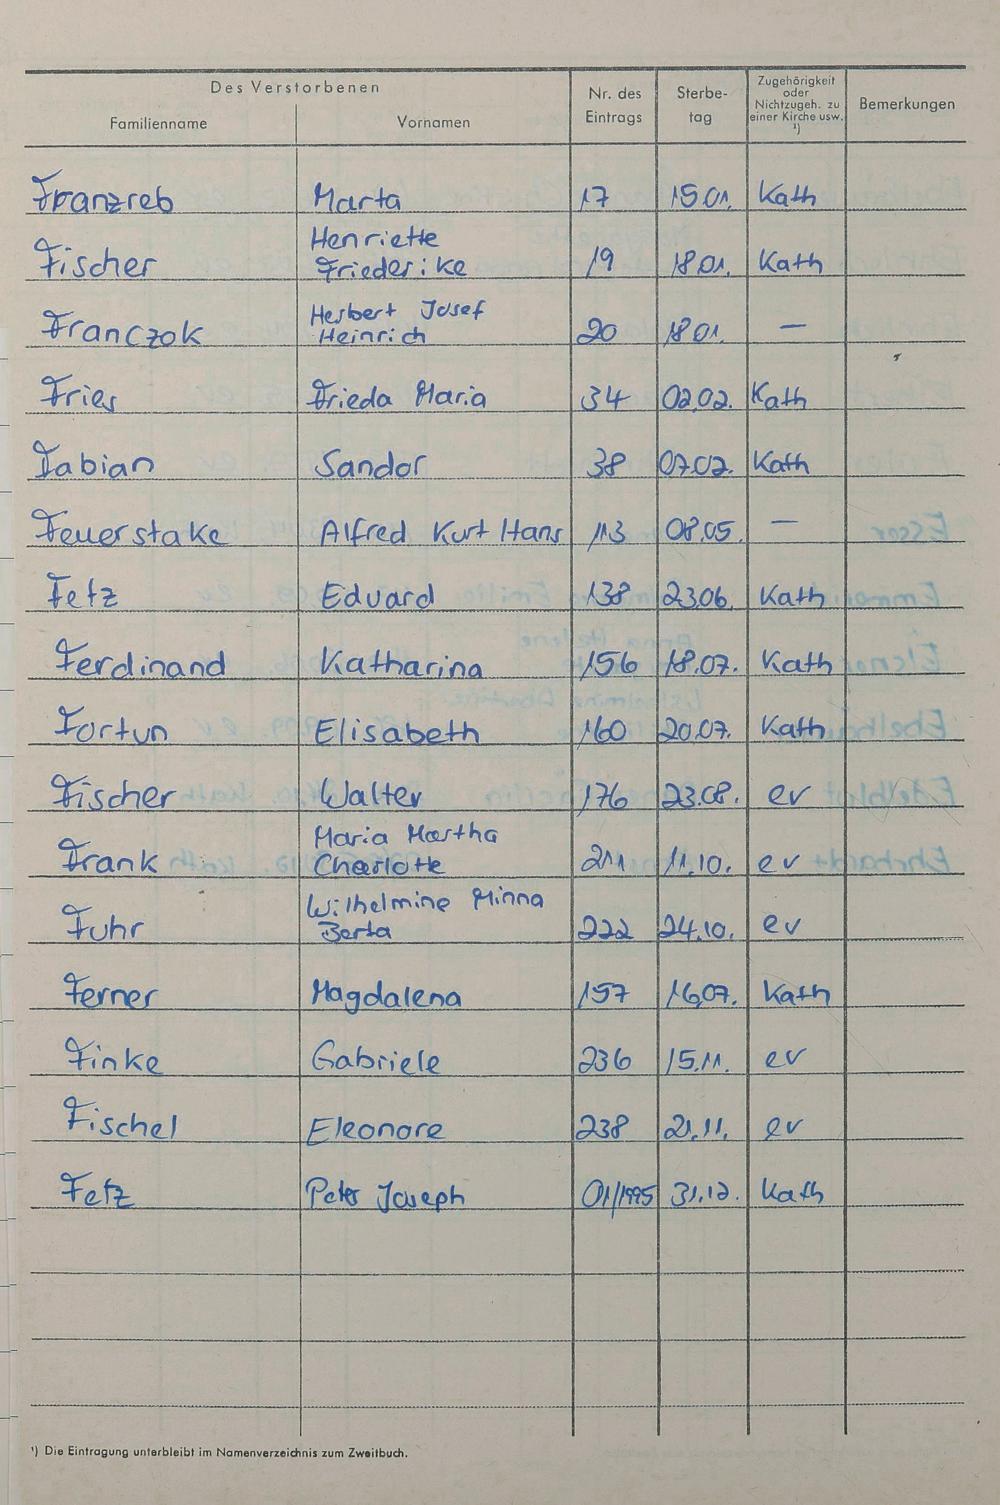 Des Verstorbenen
Familienname Vornamen Nr. des Eintrags Sterbe-tag Zugehörigkeit oder Nichtzugeh. zu einer Kirche usw. ¹) Bemerkungen
Franzreb Marta 17 15.01. Kath
Fischer Henriette Friederike 19 18.01. Kath
Franczok Herbert Josef Heinrich 20 18.01. —
Fries Frieda Maria 34 02.02. Kath
Fabian Sandor 38 07.02. Kath
Feuerstake Alfred Kurt Hans 113 08.05. —
Fetz Eduard 138 23.06. Kath
Ferdinand Katharina 156 18.07. Kath
Fortun Elisabeth 160 20.07. Kath
Fischer Walter 176 23.08. ev
Frank Maria Martha Charlotte 211 11.10. ev
Fuhr Wilhelmine Minna Berta 222 24.10. ev
Ferner Magdalena 157 16.07. Kath
Finke Gabriele 236 15.11. ev
Fischel Eleonore 238 21.11. ev
Fetz Peter Joseph 01/1995 31.12. Kath
¹) Die Eintragung unterbleibt im Namenverzeichnis zum Zweitbuch.